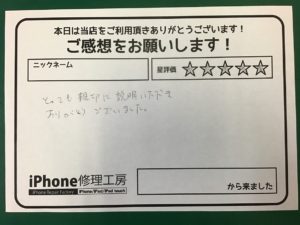 本日は当店をご利用頂きありがとうございます！
ご感想をお願いします！
ニックネーム
星評価 ☆☆☆☆☆
とっても親切に説明いただき
ありがとうございました。
iPhone修理工房
iPhone Repair Factory
iPhone/iPad/iPod touch
から来ました